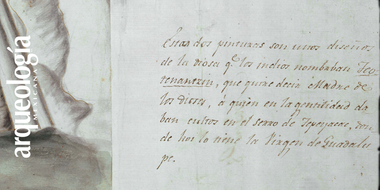 arqueología
MEXICANA
Estas dos pinturas son unos diseños
de la diosa qᵉ los indios nombraban Teo-
nantzin, que quiere decir Madre de
los dioses, á quien en la gentilidad da
ban cultos en el serro de Tepeyacac, don
de hoi lo tiene la Virgen de Guadalu
pe.